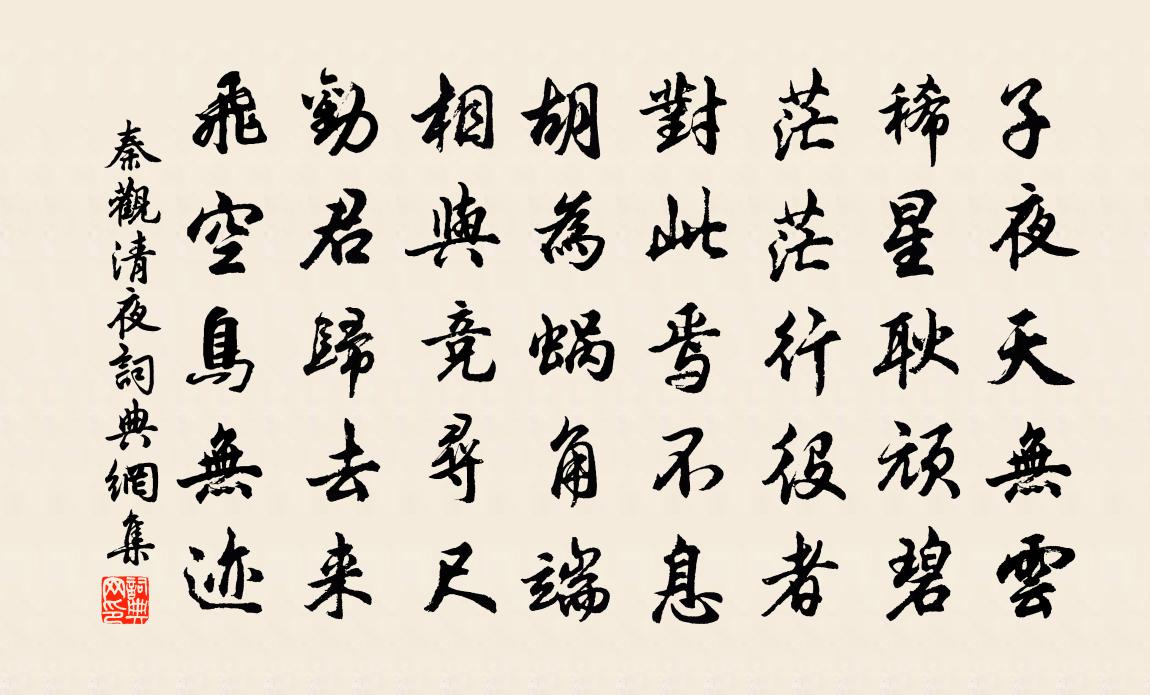 子夜天無雲
稀星耿頑碧
茫茫行役者
對此焉不息
胡為蝸角端
相與竞尋尺
勸君歸去来
飛空鳥無迹
秦觀清夜詞典網集
詞典网印